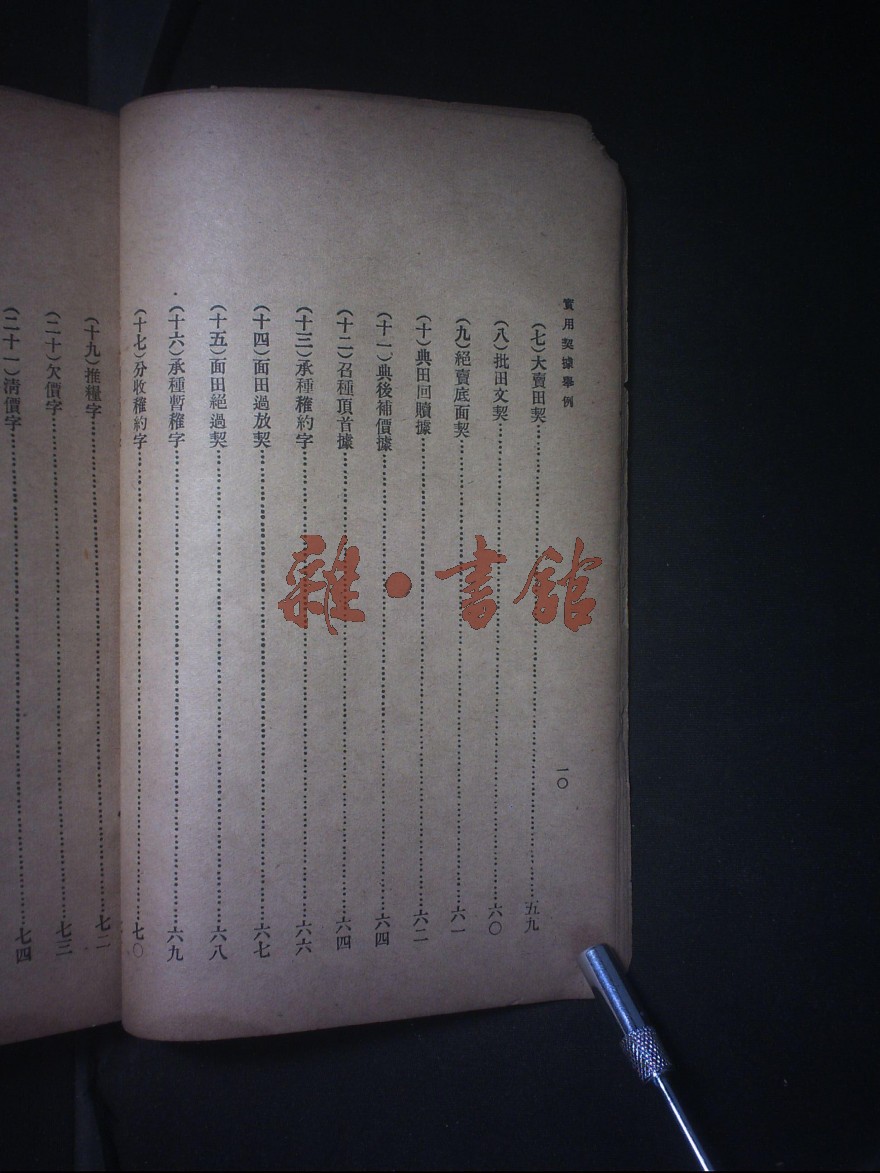 實用契據舉例
一〇
(七)大賣田契……五九
(八)批田文契……六〇
(九)絕賣底面契……六一
(十)典田回贖據……六二
(十一)典後補價據……六四
(十二)召種頂首據……六四
(十三)承種穫約字……六六
(十四)面田過放契……六七
(十五)面田絕過契……六八
(十六)承種暫穫字……六九
(十七)分收穫約字……七〇
(十九)推糧字……七二
(二十)欠價字……七三
(二十一)清價字……七四
雜·書館